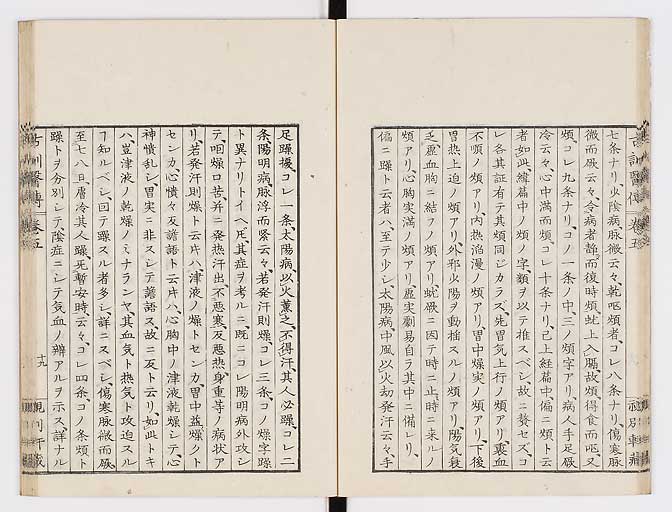 七条ナリ、少陰病、脉微云々、乾嘔煩者、コレ八条ナリ、傷寒脉
微而厥云々、今病者静、而復時煩、蚘上入膈、故煩、得食而嘔、又
煩、コレ九条ナリ、コノ一条ノ中、三ノ煩字アリ、病人手足厥
冷云々、心中満而煩、コレ十条ナリ、已上経篇中、偏ニ煩ト云
者如此、緯篇中ノ煩ノ字、類ヲ以テ推スベシ、故ニ贅セズ、コ
レ各其証有テ其煩同ジカラズ、先冒気上行ノ煩アリ、裏血
不順ノ煩アリ、内熱滔漫ノ煩アリ、胃中燥実ノ煩アリ、下後
胃熱上迫ノ煩アリ、外邪少陽ヲ動揺スルノ煩アリ、陽気衰
乏、虚血胸ニ結ブノ煩アリ、蚘厥ニ因テ時ニ止、時ニ来ルノ
煩アリ、心胸実満ノ煩アリ、虚実劇易自ラ其中ニ備レリ、
偏ニ躁ト云者ハ至テ少シ、太陽病中風、以火劫発汗云々、手
足躁擾、コレ一条、太陽病、以火薫之、不得汗、其人必躁、コレ二
条、陽明病、脉浮而緊云々、若発汗則燥、コレ三条、コノ燥字躁
ト異ナリトイヘ𪜈、其症ヲ考ルニ、既ニコレ陽明病外攻シ
テ咽燥口苦、并ニ発熱汗出、不悪寒反悪熱、身重等ノ病状ア
リ、若発汗則燥ト云片ハ、津液ノ燥トセンカ、胃中益燥クト
センカ、心憒々反譫語ト云片ハ、心胸中ノ津液乾燥シテ心
神憒乱シ、胃実ニ非スシテ譫語ス、故ニ反ト云リ、如此トキ
ハ豈津液ノ乾燥ノミナランヤ、其血気ト熱気ト攻迫スル
ヿ知ルベシ、回テ躁スル者多シ、詳ニスベシ、傷寒脉微而厥、
至七八日膚冷、其人躁、无暫安時、云々、コレ四条、コノ条煩ト
躁トヲ分別シテ陰症ニシテ気血ノ辨アルヲ示ス、詳ナル
古訓醫傳 巻五
十九